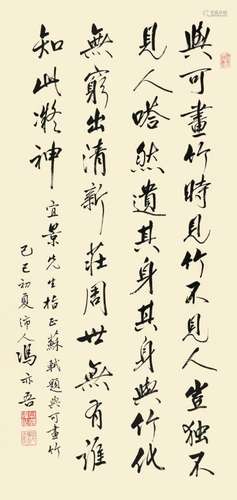 與可畫竹時見竹不見人豈獨不
見人嗒然遺其身其身與竹化
無窮出清新莊周世無有誰
知此凝神
宜景先生指正蘇軾題與可畫竹
己巳初夏沛人馮亦吾